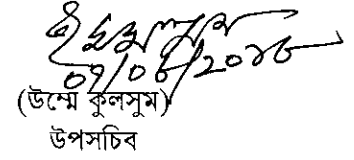 ০৭/০৮/২০১৮
(উম্মে কুলসুম)
উপসচিব